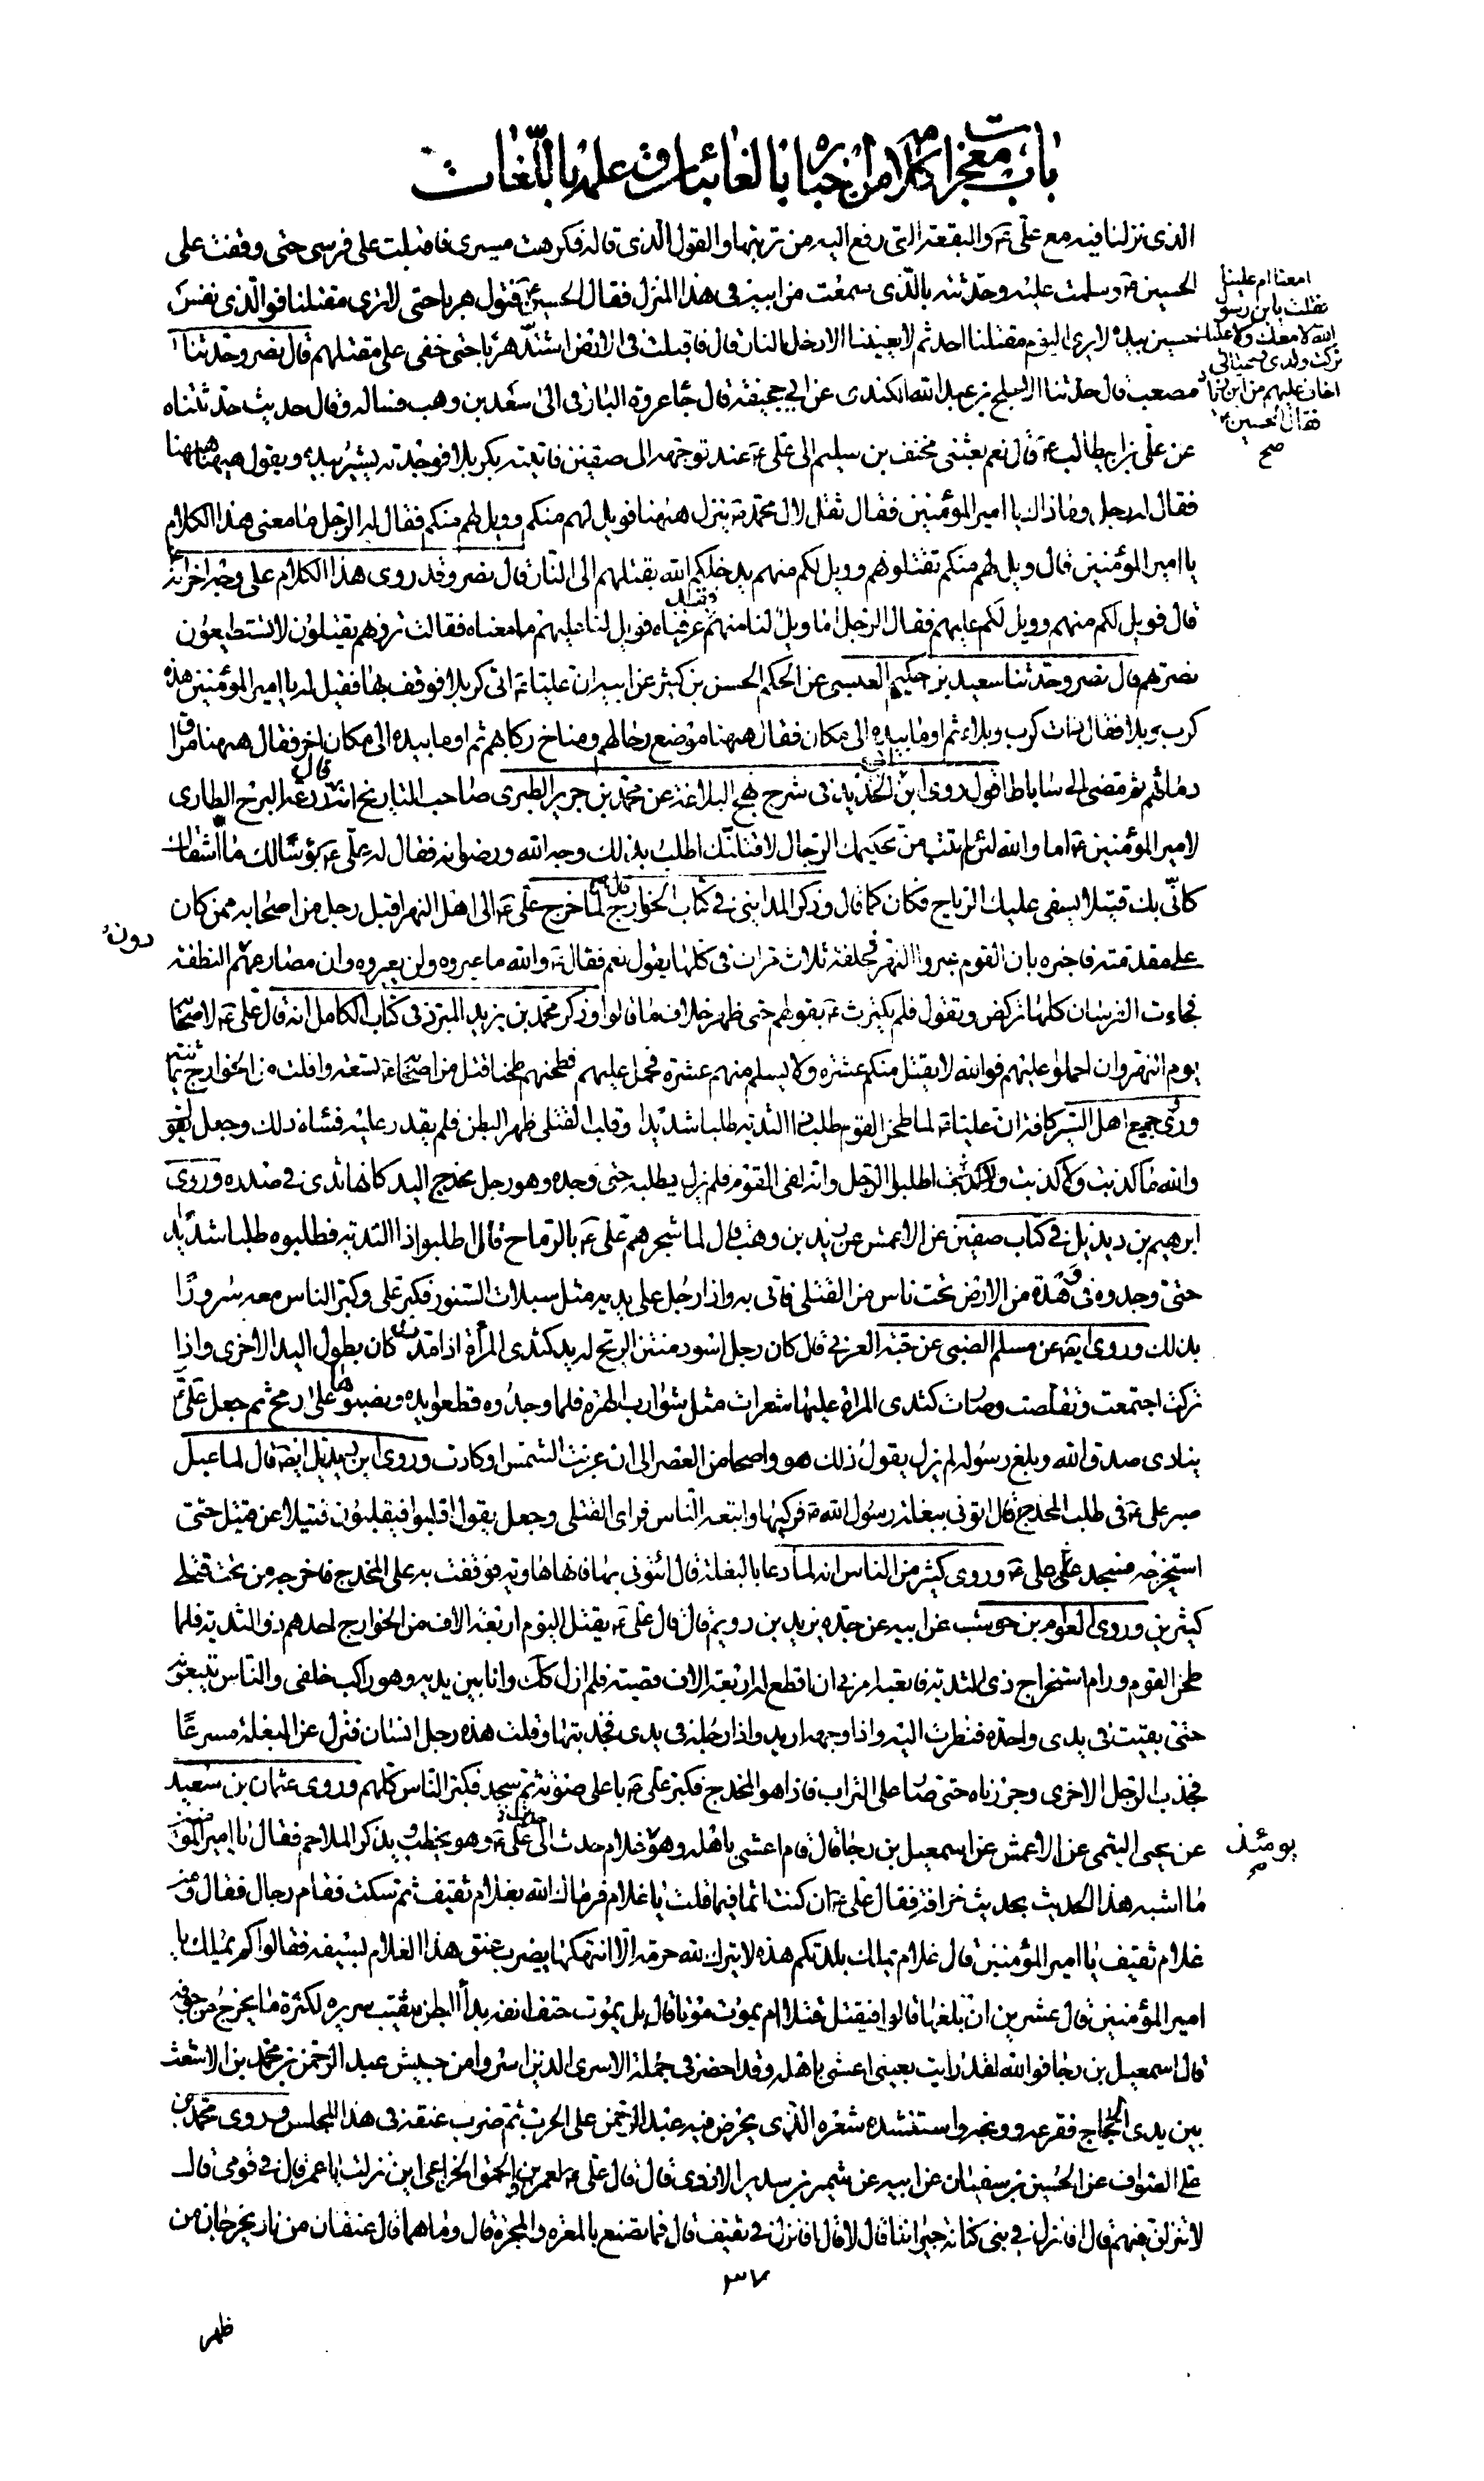 باب معجزات كلامه من اخباره بالغائبات وعلمه باللغات
الذى نزلنا فيه مع على ع والبقعة التى رفع اليه من تربتها والقول الذى قاله فكرهت مسيرى فاقبلت على فرسى حتى وقفت على
الحسين ع وسلمت عليه وحدثته بالذى سمعت من ابيه فى هذا المنزل فقال الحسين ع فتول هربا حتى لا ترى مقتلنا فوالذى نفس
حسين بيده لا يرى اليوم مقتلنا احد ثم لا يعيننا الا دخل النار قال فاقبلت فى الارض اشتد هربا حتى خفى على مقتلهم قال نصر وحدثنا
مصعب قال حدثنا الاجلح بن عبد الله الكندى عن ابى جحيفة قال جاء عروة البارقى الى سعد بن وهب فساله وقال حديث حدثتناه
عن على بن ابيطالب ع قال نعم بعثنى مخنف بن سليم الى على ع عند توجهه الى صفين فاتيته بكربلا فوجدته يشير بيده ويقول ههنا ههنا
فقال له رجل وما ذاك يا امير المؤمنين فقال ثقل لال محمد ص ينزل ههنا فويل لهم منكم وويل لكم منهم فقال له الرجل ما معنى هذا الكلام
يا امير المؤمنين قال ويل لهم منكم تقتلونهم وويل لكم منهم يدخلكم الله بقتلهم الى النار قال نصر وقد روى هذا الكلام على وجه اخر انه ع
قال فويل لكم منهم وويل لكم عليهم فقال الرجل اما ويل لنا منهم فقد عرفناه فويل لنا عليهم ما معناه فقال ترونهم يقتلون لا تستطيعون
نصرتهم قال نصر وحدثنا سعيد بن حكيم العبسى عن الحكم الحسن بن كثير عن ابيه ان عليا ع اتى كربلا فوقف بها فقيل له يا امير المؤمنين هذه
كربلا فقال ذات كرب وبلاء ثم اوما بيده الى مكان فقال ههنا موضع رحالهم ومناخ ركابهم ثم اوما بيده الى مكان اخر فقال ههنا مراق
دمائهم ثم مضى الى ساباط اقول روى ابن ابى الحديد فى شرح نهج البلاغة عن محمد بن جرير الطبرى صاحب التاريخ انه قال زرعة البرج الطارى
لامير المؤمنين ع اما والله لئن لم تتب من تحكيمك الرجال لاقتلنك اطلب بذلك وجه الله ورضوانه فقال له على ع بؤسا لك ما اشقاك
كانى بك قتيلا يسفى عليك الرياح فكان كما قال وذكر المداينى فى كتاب الخوارج قال لما خرج على ع الى اهل النهر اقبل رجل من اصحابه ممن كان
على مقدمته فاخبره بان القوم عبروا النهر فحلفه ثلاث مرات فى كلها يقول نعم فقال ع والله ما عبروه ولن يعبروه وان مصارعهم دون النطفة
فجاءت الفرسان كلها تركض وتقول فلم يكترث ع بقولهم حتى ظهر خلاف ما قالوا وذكر محمد بن يزيد المبرد فى كتاب الكامل انه قال على ع لاصحابه
يوم النهروان احملوا عليهم فوالله لا يقتل منكم عشرة ولا يسلم منهم عشرة فحمل عليهم فطحنهم طحنا قتل من اصحابه ع تسعة وافلت من الخوارج ثمانية
وروى جميع اهل السير كافة ان عليا ع لما طحن القوم طلب ذا الثدية طلبا شديدا وقلب القتلى ظهر البطن فلم يقدر عليه فساءه ذلك وجعل يقول
والله ما كذبت ولا كذبت ولا كذبت اطلبوا الرجل وانه لفى القوم فلم يزل يطلبه حتى وجده وهو رجل مخدج اليد كانها ثدى فى صدره وروى
ابرهيم بن ديزيل فى كتاب صفين عن الاعمش عن زيد بن وهب قال لما شجرهم على ع بالرماح قال اطلبوا ذا الثدية فطلبوه طلبا شديدا
حتى وجدوه فى وهدة من الارض تحت ناس من القتلى فاتى به واذا رجل على يديه مثل سبلات السنور فكبر على وكبر الناس معه سرورا
بذلك وروى ايضا عن مسلم الضبى عن حبة العرنى قال كان رجل اسود منتن الريح له يد كثدى المراة اذا مدت كان بطول اليد الاخرى واذا
تركت اجتمعت وتقلصت وصارت كثدى المراة عليها شعرات مثل شوارب الهرة فلما وجدوه قطعوا يده ونصبوها على رمح ثم جعل على ع
ينادى صدق الله وبلغ رسوله لم يزل يقول ذلك هو واصحابه من العصر الى ان غربت الشمس او كادت وروى ابن ديزيل ايضا قال لما عيل
صبر على ع فى طلب المخدج قال ائتونى ببغلة رسول الله ص فركبها واتبعه الناس فراى القتلى وجعل يقول اقلبوا فيقلبون قتيلا عن قتيل حتى
استخرجه فسجد على ع وروى كثير من الناس انه لما دعا بالبغلة قال ائتونى بها فانها هادية فوقفت به على المخدج فاخرجه من تحت قتلى
كثيرين وروى العوام بن حوشب عن ابيه عن جده يزيد بن رويم قال قال على ع يقتل اليوم اربعة الاف من الخوارج احدهم ذو الثدية فلما
طحن القوم ورام استخراج ذى الثدية فاتعبه امرنى ان اقطع له اربعة الاف قصبة فلم ازل كذلك وانا بين يديه وهو راكب خلفى والناس يتبعونه
حتى بقيت فى يدى واحدة فنظرت اليه واذا وجهه اربد واذا رجله فى يدى فجذبتها وقلت هذه رجل انسان فنزل عن البغلة مسرعا
فجذب الرجل الاخرى وجررناه حتى صار على التراب فاذا هو المخدج فكبر على ع باعلى صوته ثم سجد فكبر الناس كلهم وروى عثمان بن سعيد
عن يحيى التيمى عن الاعمش عن اسمعيل بن رجا قال قام اعشى باهله وهو غلام يومئذ حدث الى على ع وهو يخطب ويذكر الملاحم فقال يا امير المؤمنين
ما اشبه هذا الحديث بحديث خرافة فقال على ع ان كنت اثما فيما قلت يا غلام فرماك الله بغلام ثقيف ثم سكت فقام رجال فقال ومن
غلام ثقيف يا امير المؤمنين قال غلام يملك بلدتكم هذه لا يترك لله حرمة الا انتهكها يضرب عنق هذا الغلام بسيفه فقالوا كم يملك يا
امير المؤمنين قال عشرين ان بلغها قالوا فيقتل قتلا ام يموت موتا قال بل يموت حتف انفه بداء البطن يثقب سريره لكثرة ما يخرج من جوفه
قال اسمعيل بن رجا فوالله لقد رايت بعينى اعشى باهله وقد احضر فى جملة الاسرى الذين اسروا من جيش عبد الرحمن بن محمد بن الاشعث
بين يدى الحجاج فقرعه ووبخه واستنشده شعره الذى يحرض فيه عبد الرحمن على الحرب ثم ضرب عنقه فى هذا المجلس وروى محمد بن
على الصواف عن الحسين بن سفيان عن ابيه عن شمير بن سدير الازدى قال قال على ع لعمرو بن الحمق الخزاعى اين نزلت يا عمرو قال فى قومى قال
لا تنزلن فيهم قال افانزل فى بنى كنانة جيراننا قال لا قال افانزل فى ثقيف قال فما تصنع بالمعرة والمجرة قال وما هما قال عنقان من نار يخرجان من
امعنا ام علينا
فقلت يا بن رسول
الله لا معك ولا عليك
تركت ولدى وعيالى
اخاف عليهم من ابن زياد
فقال الحسين ع
صح
دون
يومئذ
٣٧
ظهر